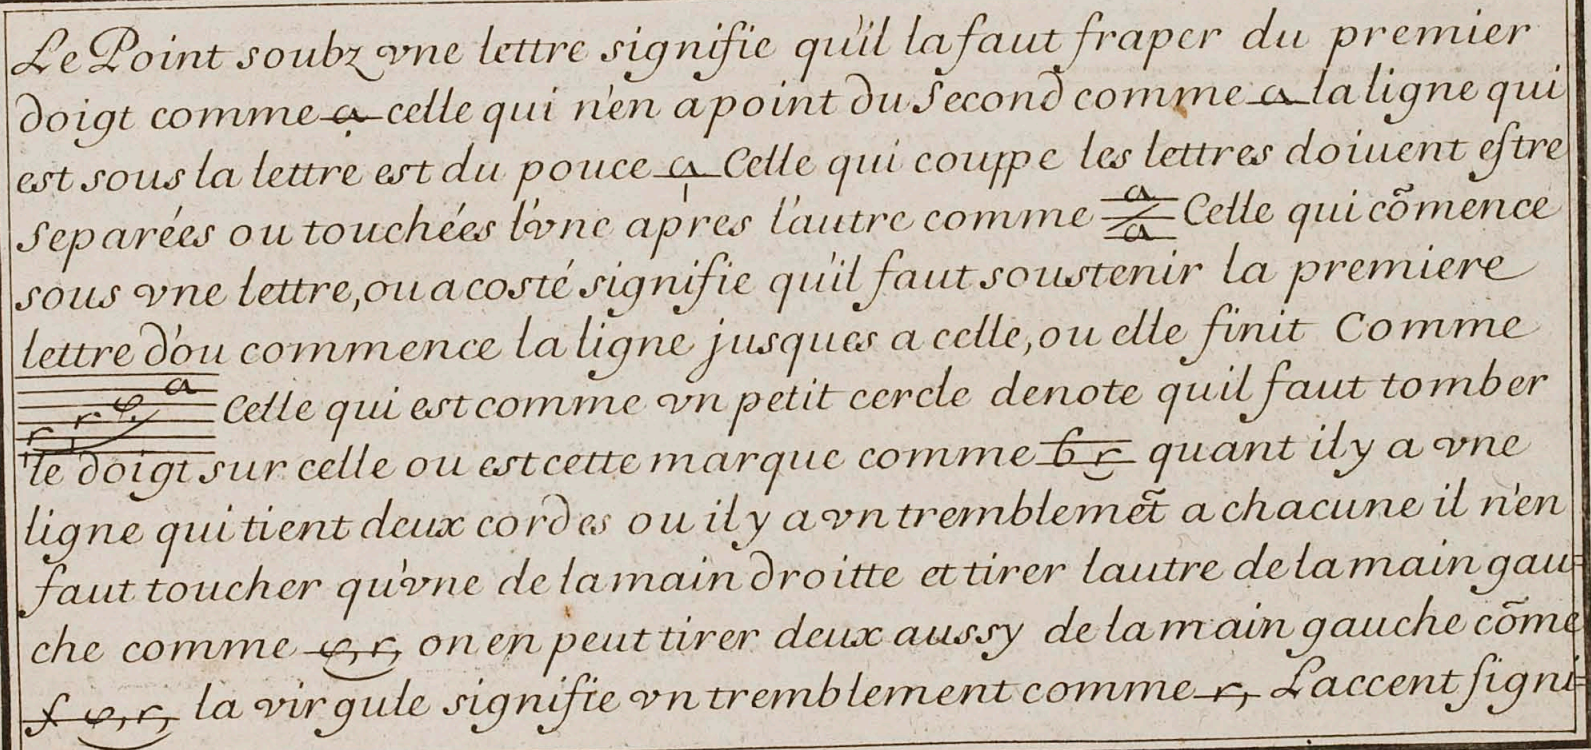 Le Point soubz vne lettre signifie qu'il la faut fraper du premier
doigt comme a celle qui n'en a point du Second comme a la ligne qui
est sous la lettre est du pouce a Celle qui couppe les lettres doiuent estre
Separées ou touchées l'vne apres l'autre comme a a Celle qui cõmence
sous vne lettre, ou a costé signifie qu'il faut soustenir la premiere
lettre d'ou commence la ligne jusques a celle, ou elle finit Comme
r r e a Celle qui est comme vn petit cercle denote quil faut tomber
le doigt sur celle ou est cette marque comme b r quant il y a vne
ligne qui tient deux cordes ou il y a vn tremblemẽt a chacune il n'en
faut toucher qu'vne de la main droitte et tirer lautre de la main gau=
che comme e, r, on en peut tirer deux aussy de la main gauche cõme
f e, r, la virgule signifie vn tremblement comme r, Laccent signi=